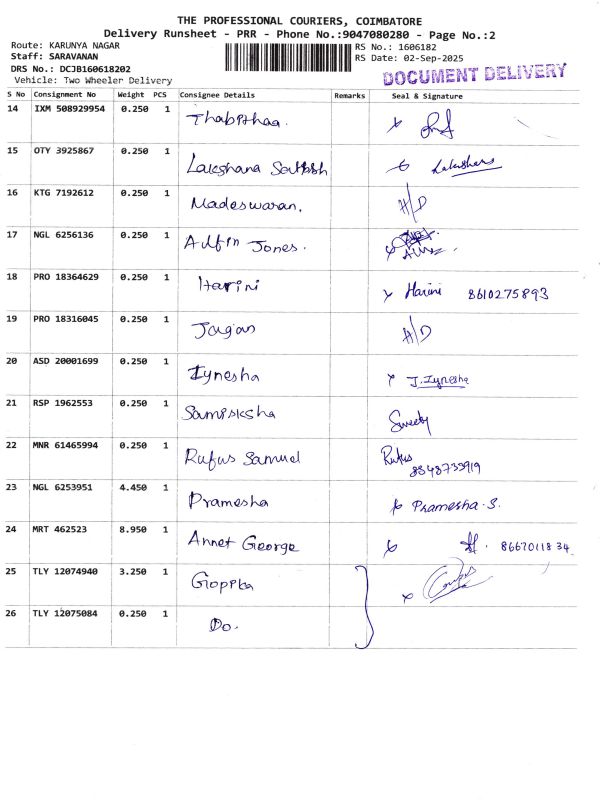 THE PROFESSIONAL COURIERS, COIMBATORE
Delivery Runsheet - PRR - Phone No.:9047080280 - Page No.:2
Route: KARUNYA NAGAR
Staff: SARAVANAN
DRS No.: DCJB160618202
Vehicle: Two Wheeler Delivery
RS No.: 1606182
RS Date: 02-Sep-2025
DOCUMENT DELIVERY
S No Consignment No Weight PCS Consignee Details Remarks Seal & Signature
14 IXM 508929954 0.250 1 Thabithaa. x
15 OTY 3925867 0.250 1 Lakshana Sathish
16 KTG 7192612 0.250 1 Madeswaran. H/D
17 NGL 6256136 0.250 1 Adlfin Jones. x
18 PRO 18364629 0.250 1 Harini x Harini 8610275893
19 PRO 18316045 0.250 1 Jagan H/D
20 ASD 20001699 0.250 1 Iynesha x J.Iynesha
21 RSP 1962553 0.250 1 Samisksha Sweety
22 MNR 61465994 0.250 1 Rufus Samuel Rufus
8848733919
23 NGL 6253951 4.450 1 Pramesha x Pramesha.S.
24 MRT 462523 8.950 1 Annet George x 8667011834
25 TLY 12074940 3.250 1 x
26 TLY 12075084 0.250 1 Do.